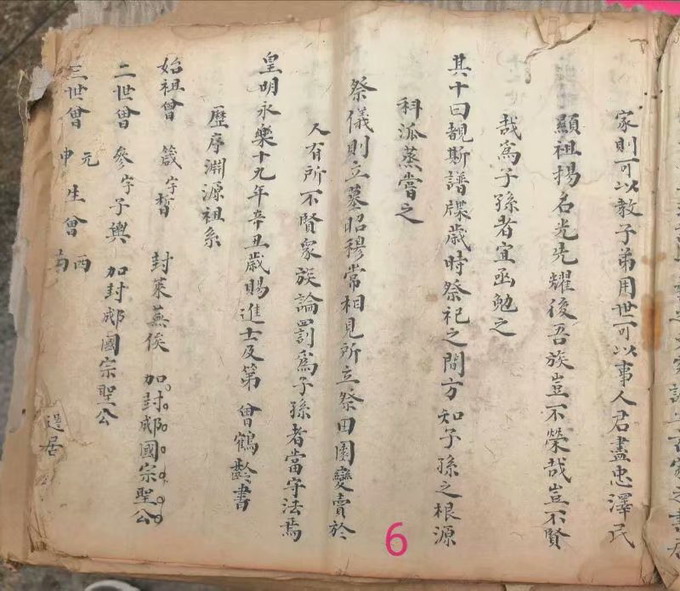 家則可以教子弟用世可以事人君盡忠澤民
顯祖揚名光先耀後吾族豈不榮哉豈不賢
哉爲子孫者宜亟勉之
其十曰覩斯譜牒歲時祭祀之間方知子孫之根源
科派蒸嘗之
祭儀則立墓昭穆常相見所立祭田園變賣於
人有所不賢衆族論罰爲子孫者當守法焉
皇明永樂十九年辛丑歲賜進士及第 曾鶴齡書
歷序淵源祖系
始祖曾 箴字晳 封萊蕪侯 加封郕國宗聖公
二世曾 參字子輿 加封郕國宗聖公
三世曾 元 申 生曾 西
6